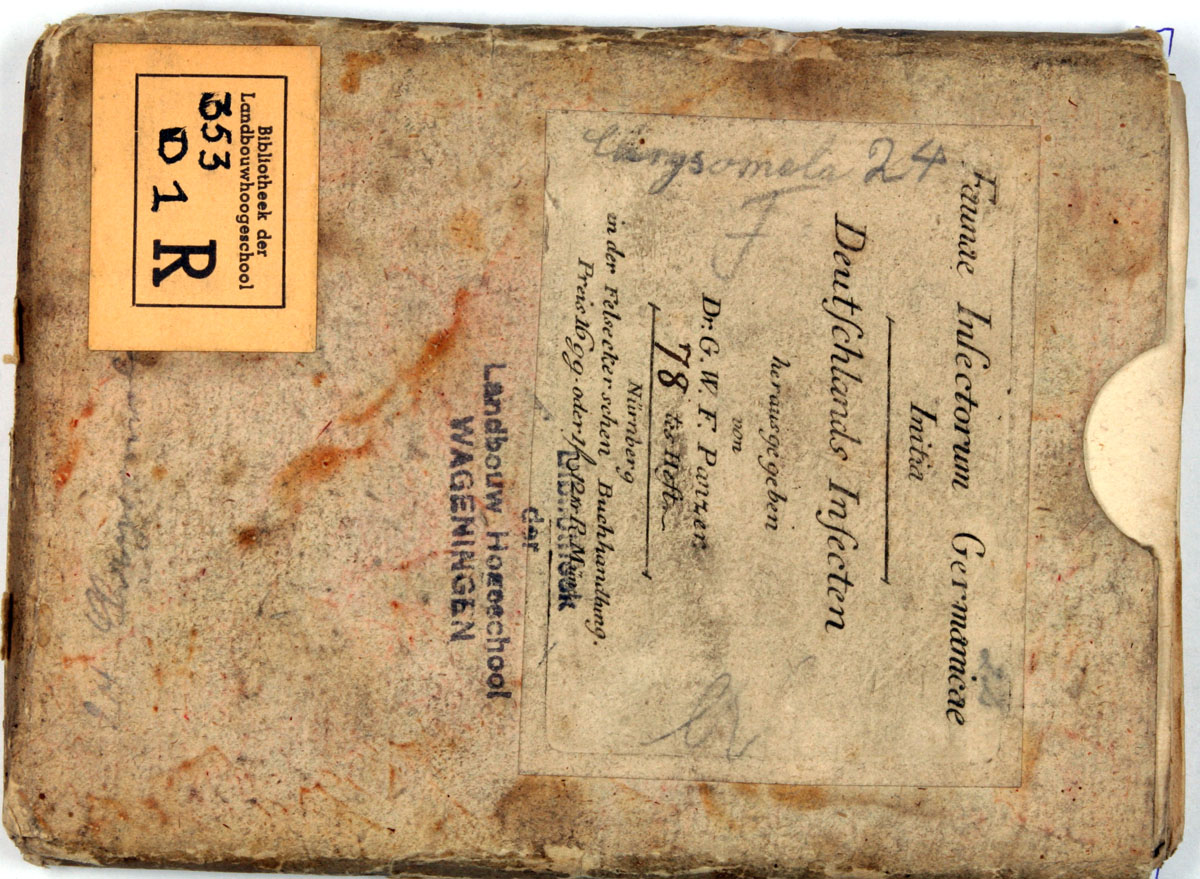 Chrysomela 24
Faunae Insectorum Germanicae
Initia
Deutſchlands Inſecten
herausgegeben
von
Dr. G. W. F. Panzer.
78 tes Heft.
Nürnberg
in der Felseckerschen Buchhandlung.
Preis 16 gg. oder 1 f 12 xr R.
der
Landbouw Hoogeschool
WAGENINGEN
Bibliotheek der
Landbouwhoogeschool
353
D 1 R